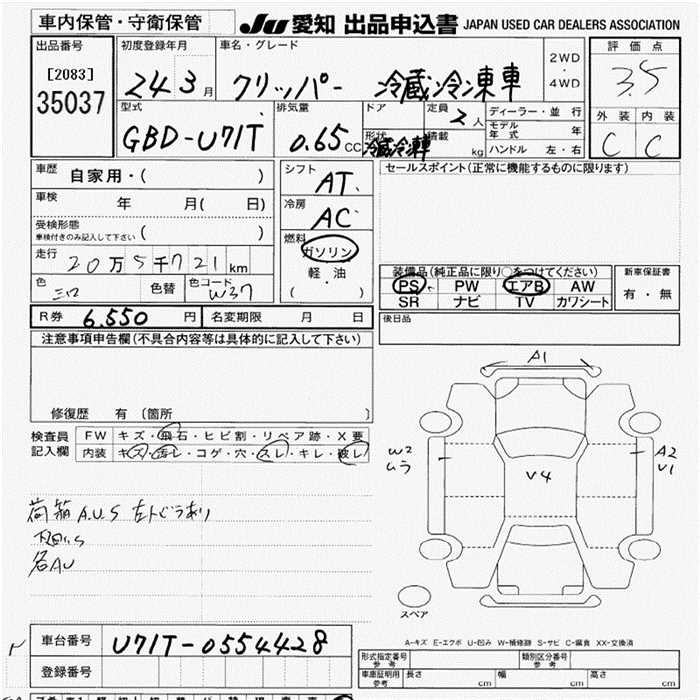 車内保管・守衛保管 JU 愛知 出品申込書 JAPAN USED CAR DEALERS ASSOCIATION
出品番号 初度登録年月 車名・グレード 2WD・4WD 評価点
[2083] 24 3月 クリッパー 冷蔵冷凍車 3.5
35037
型式 排気量 ドア 定員 2人 ディーラー・並行 外装 内装
GBD-U71T 0.65CC 形状 冷蔵冷凍車 積載 kg モデル年式 年 C C
ハンドル 左・右
車歴 自家用・( ) シフト AT セールスポイント(正常に機能するものに限ります)
車検 年 月( 日) 冷房 AC
受検形態 ( )
車検付きのみ記入して下さい
走行 20万5千721km 燃料 ガソリン 軽油 ( )
装備品(純正品に限り○をつけてください) 新車保証書
色 色替 色コード W37 PS PW エアB AW 有・無
SR ナビ TV カワシート
R券 6.550円 名変期限 月 日 後日品
注意事項申告欄(不具合内容等は具体的に記入して下さい)
修復歴 有 〔箇所 〕
検査員記入欄 FW キズ・飛石・ヒビ割・リペア跡・X要
内装 キズ・汚レ・コゲ・穴・スレ・キレ・破レ
A1
W2 ムラ
A2
V1
V4
荷箱A.U.S
下廻りS
各AU
スペア
A-キズ E-エクボ U-凹み W-補修跡 S-サビ C-腐食 XX-交換済
車台番号 U71T-0554428
登録番号
形式指定番号 参考 類別区分番号 参考
車庫証明用 参考 長さ cm 幅 cm 高さ cm